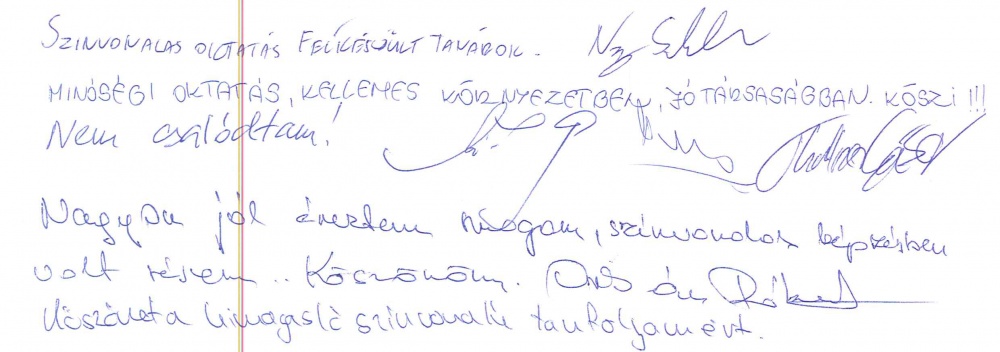 SZINVONALAS OKTATÁS FELKÉSZÜLT TANÁROK.
MINŐSÉGI OKTATÁS, KELLEMES KÖRNYEZETBEN, JÓ TÁRSASÁGBAN. KÖSZI!!!
Nem csalódtam!
Nagyon jól éreztem magam, szinvonalas képzésben
volt részem.. Köszönöm.
Köszönet a kimagasló szinvonalú tanfolyamért.